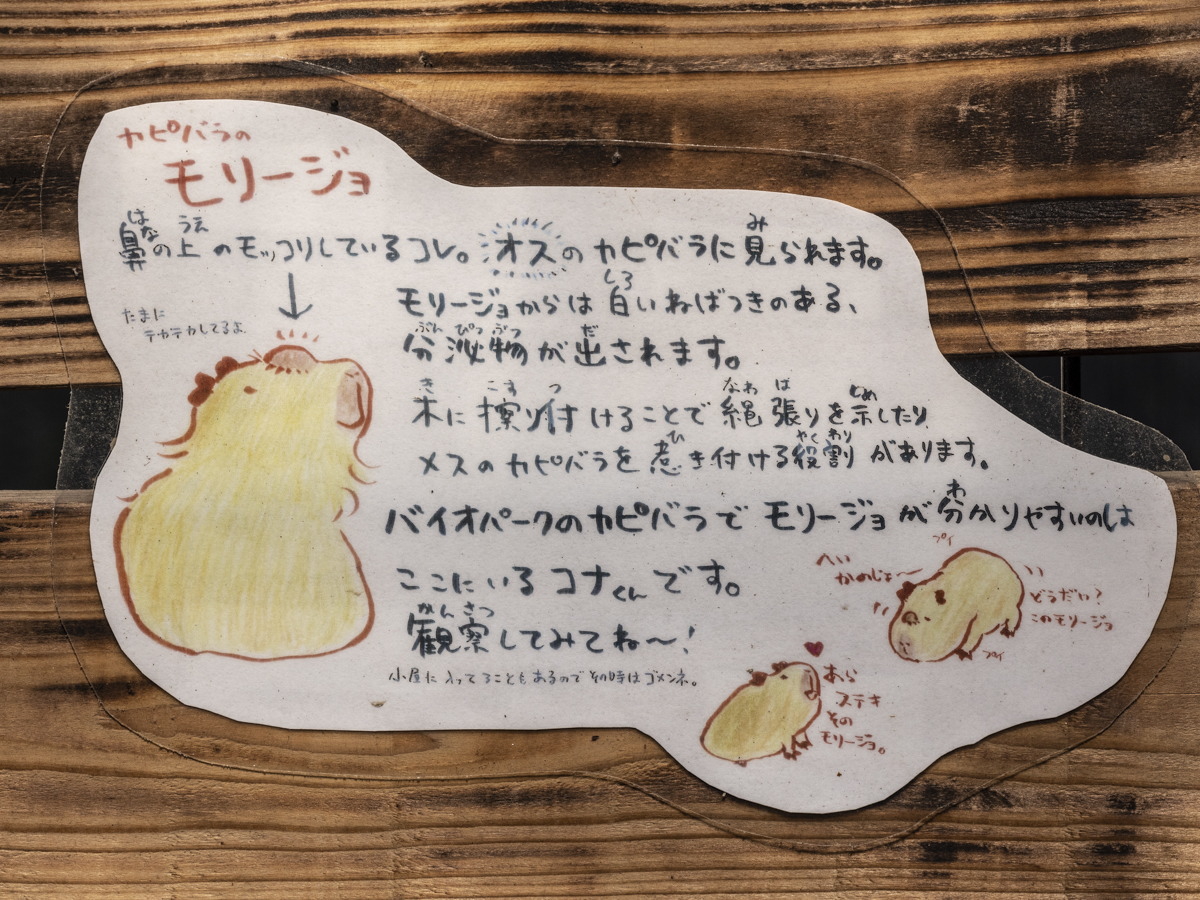 カピバラの
モリージョ
鼻の上のモッコリしているコレ。オスのカピバラに見られます。
はな うえ み
モリージョからは白いねばつきのある、
しろ
分泌物が出されます。
ぶんぴつぶつ だ
たまに
テカテカしてるよ。
木に擦り付けることで縄張りを示したり
き こす つ なわ ば しめ
メスのカピバラを惹き付ける役割があります。
ひ やくわり
バイオパークのカピバラでモリージョが分かりやすいのは
わ
ここにいるコナくんです。
観察してみてね〜!
かんさつ
小屋に入ってることもあるのでその時はゴメンネ。
プイ
へい
かのじょ〜
どうだい?
このモリージョ
プイ
あら
ステキ
その
モリージョ。